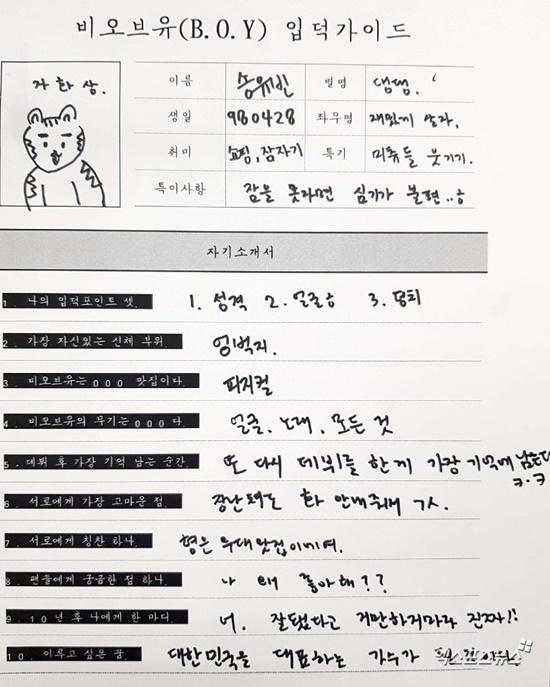 비오브유(B.O.Y) 입덕가이드
자화상.
이름 송유빈 별명 댕댕.
생일 980428 좌우명 재밌게 살자.
취미 쇼핑, 잠자기 특기 미쮸들 웃기기.
특이사항 잠을 못자면 심기가 불편..ㅎ
자기소개서
1. 나의 입덕포인트 셋. 1. 성격 2. 얼굴ㅎ 3. 덩치
2. 가장 자신있는 신체 부위. 엉벅지.
3. 비오브유는 ooo 맛집이다. 피지컬
4. 비오브유의 무기는 ooo다. 얼굴, 노래, 모든 것
5. 데뷔 후 가장 기억 남는 순간. 또 다시 데뷔를 한게 가장 기억에 남는다 ㅋ.ㅋ
6. 서로에게 가장 고마운 점. 장난쳐도 화 안내줘서 ㄱㅅ.
7. 서로에게 칭찬 하나. 형은 무대맛집이에여.
8. 팬들에게 궁금한 점 하나. 나 왜 좋아해??
9. 10년 후 나에게 한 마디. 너. 잘됐다고 거만하지마라 진짜!!
10. 이루고 싶은 꿈. 대한민국을 대표하는 가수가
엑스포츠뉴스